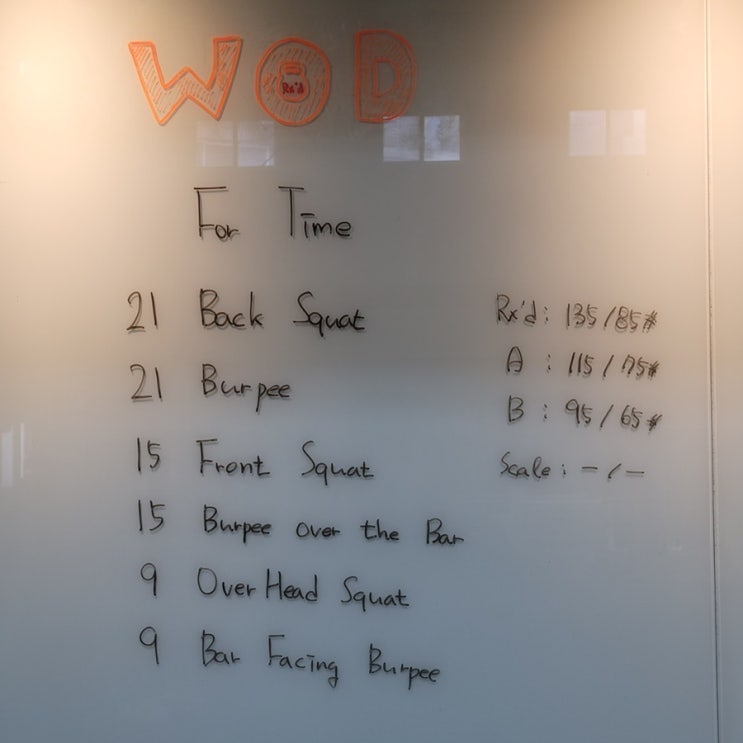 WOD
Rx'd
For Time
21 Back Squat
21 Burpee
15 Front Squat
15 Burpee over the Bar
9 OverHead Squat
9 Bar Facing Burpee
Rx'd : 135/85#
A : 115/75#
B : 95/65#
Scale : -/-